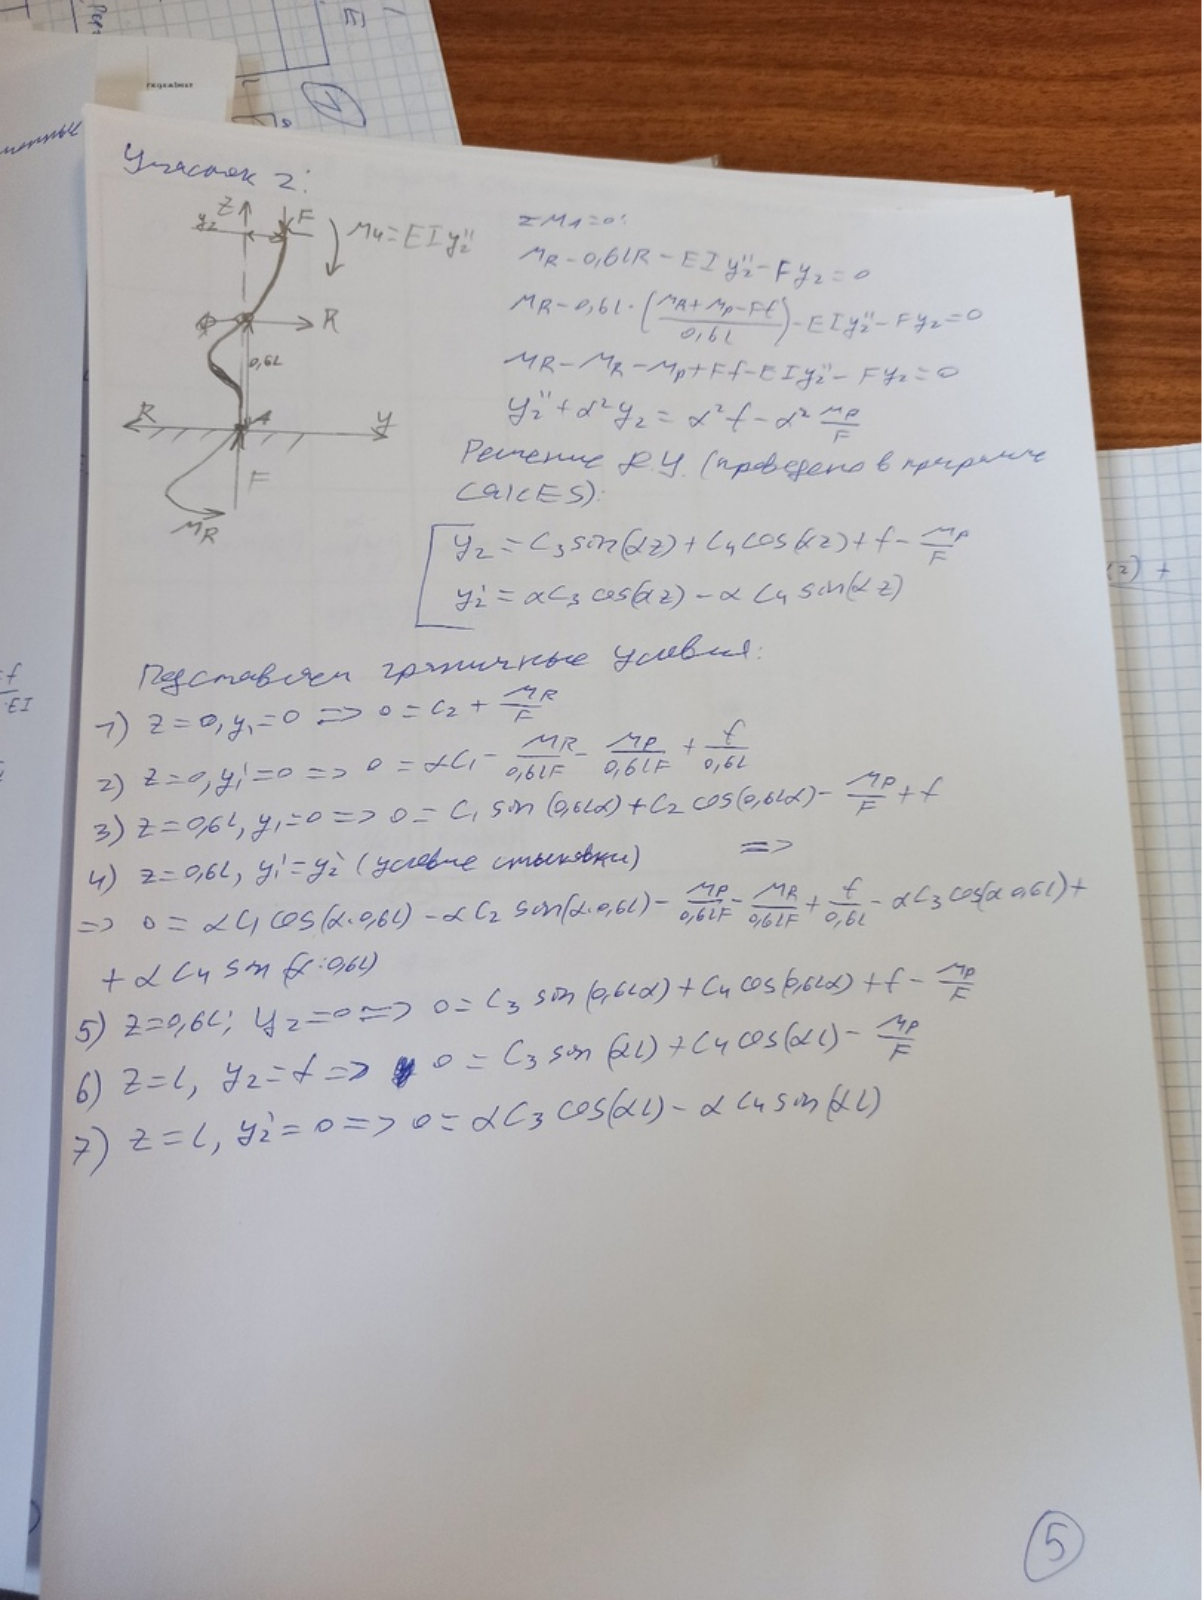 Участок 2:
Z
y₂
F
Mu = EIy₂''
R
0,6L
R
A
y
F
M_R
ΣM_A=0:
M_R - 0,6LR - EIy₂'' - Fy₂ = 0
M_R - 0,6L · ((M_R + M_P - Ff)/(0,6L)) - EIy₂'' - Fy₂ = 0
M_R - M_R - M_P + Ff - EIy₂'' - Fy₂ = 0
y₂'' + α²y₂ = α²f - α² M_P/F
Решение Д.У. (проведено в программе
CalcES):
y₂ = C₃sin(αz) + C₄cos(αz) + f - M_P/F
y₂' = αC₃cos(αz) - αC₄sin(αz)
Подставляем граничные условия:
1) z=0, y₁=0 => 0 = C₂ + M_R/F
2) z=0, y₁'=0 => 0 = αC₁ - M_R/(0,6LF) - M_P/(0,6LF) + f/(0,6L)
3) z=0,6L, y₁=0 => 0 = C₁ sin(0,6Lα) + C₂ cos(0,6Lα) - M_P/F + f
4) z=0,6L, y₁'=y₂' (условие стыковки) =>
=> 0 = αC₁cos(α·0,6L) - αC₂ sin(α·0,6L) - M_P/(0,6LF) - M_R/(0,6LF) + f/(0,6L) - αC₃cos(α0,6L) +
+ αC₄ sin(α·0,6L)
5) z=0,6L; y₂=0 => 0 = C₃ sin(0,6Lα) + C₄ cos(0,6Lα) + f - M_P/F
6) z=L, y₂=f => 0 = C₃ sin(αL) + C₄cos(αL) - M_P/F
7) z=L, y₂'=0 => 0 = αC₃cos(αL) - αC₄sin(αL)
5